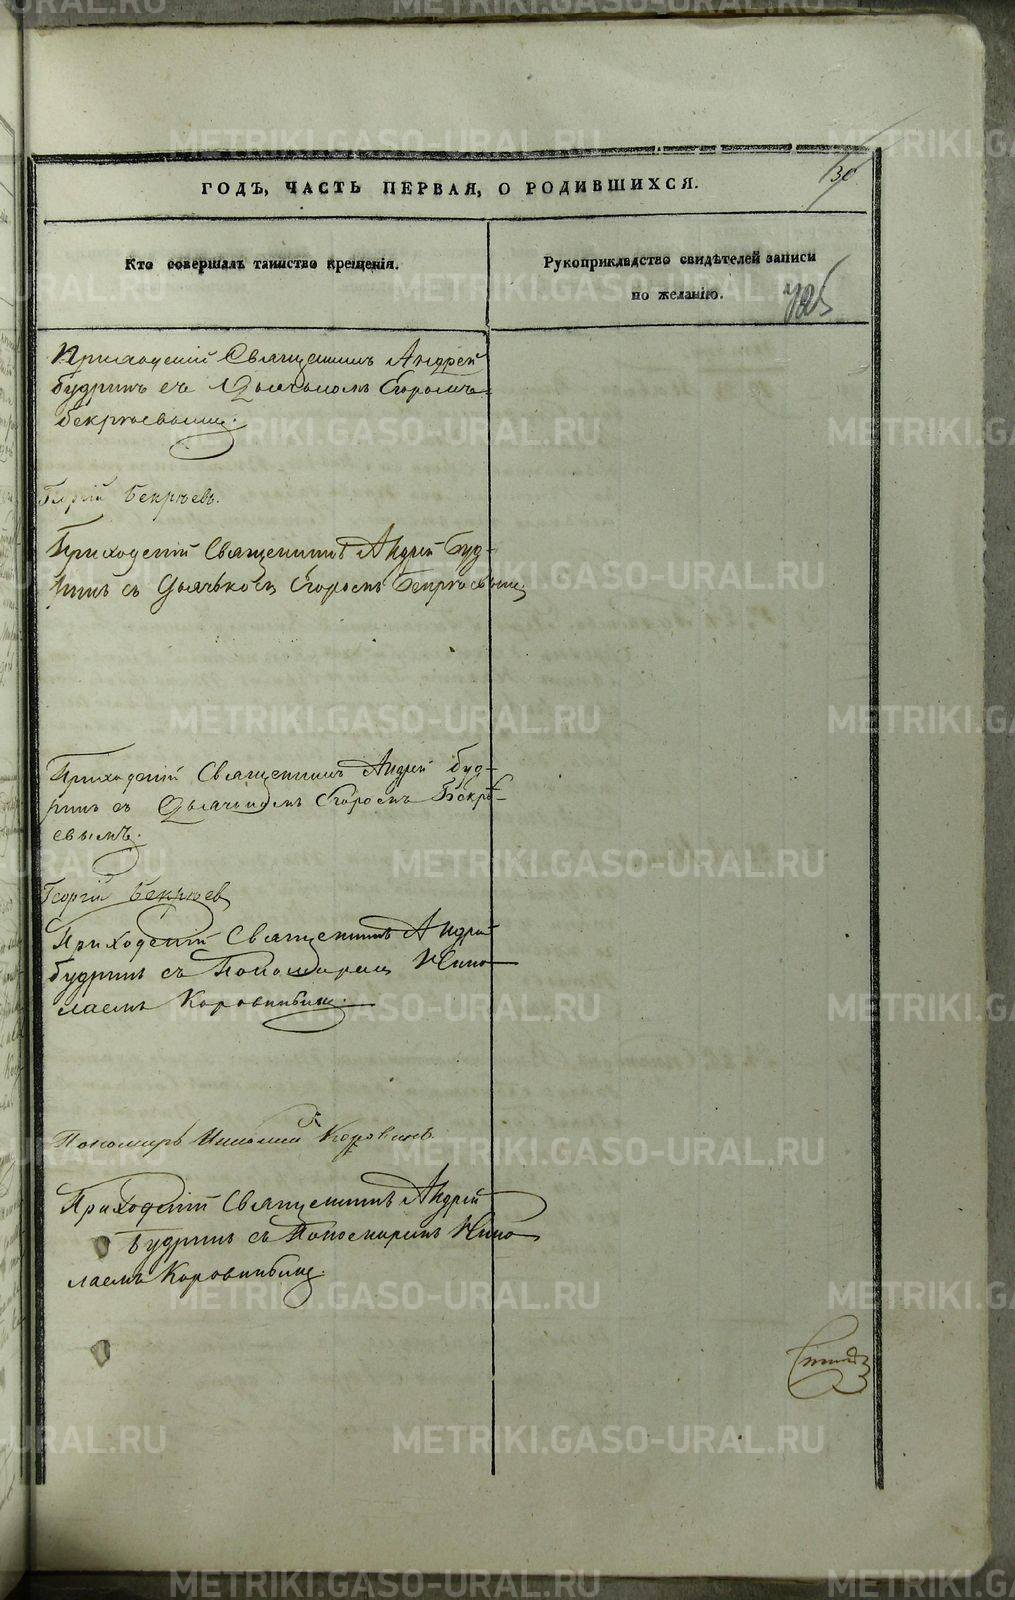 ГОДЪ, ЧАСТЬ ПЕРВАЯ, О РОДИВШИХСЯ.
30
Кто совершалъ таинство крещенія.
Рукоприкладство свидѣтелей записи
по желанію.
Приходскій Священникъ Андрей
Будринъ съ Дьячькомъ Егоромъ
Бекрюевымъ.
Гергій Бекрюевъ.
Приходскій Священникъ Андрей Буд-
ринъ съ Дьячькомъ Егоромъ Бекрюевымъ.
Приходскій Священникъ Андрей Буд-
ринъ съ Дьячькомъ Егоромъ Бекрю-
евымъ.
Георгій Бекрюев
Приходскій Священникъ Андрей
Будринъ съ Пономаремъ Нико
лаемъ Коровинымъ.
Пономарь Николай Коровинъ
Приходскій Священникъ Андрей
Будринъ съ Пономаремъ Нико
лаемъ Коровинымъ.
METRIKI.GASO-URAL.RU